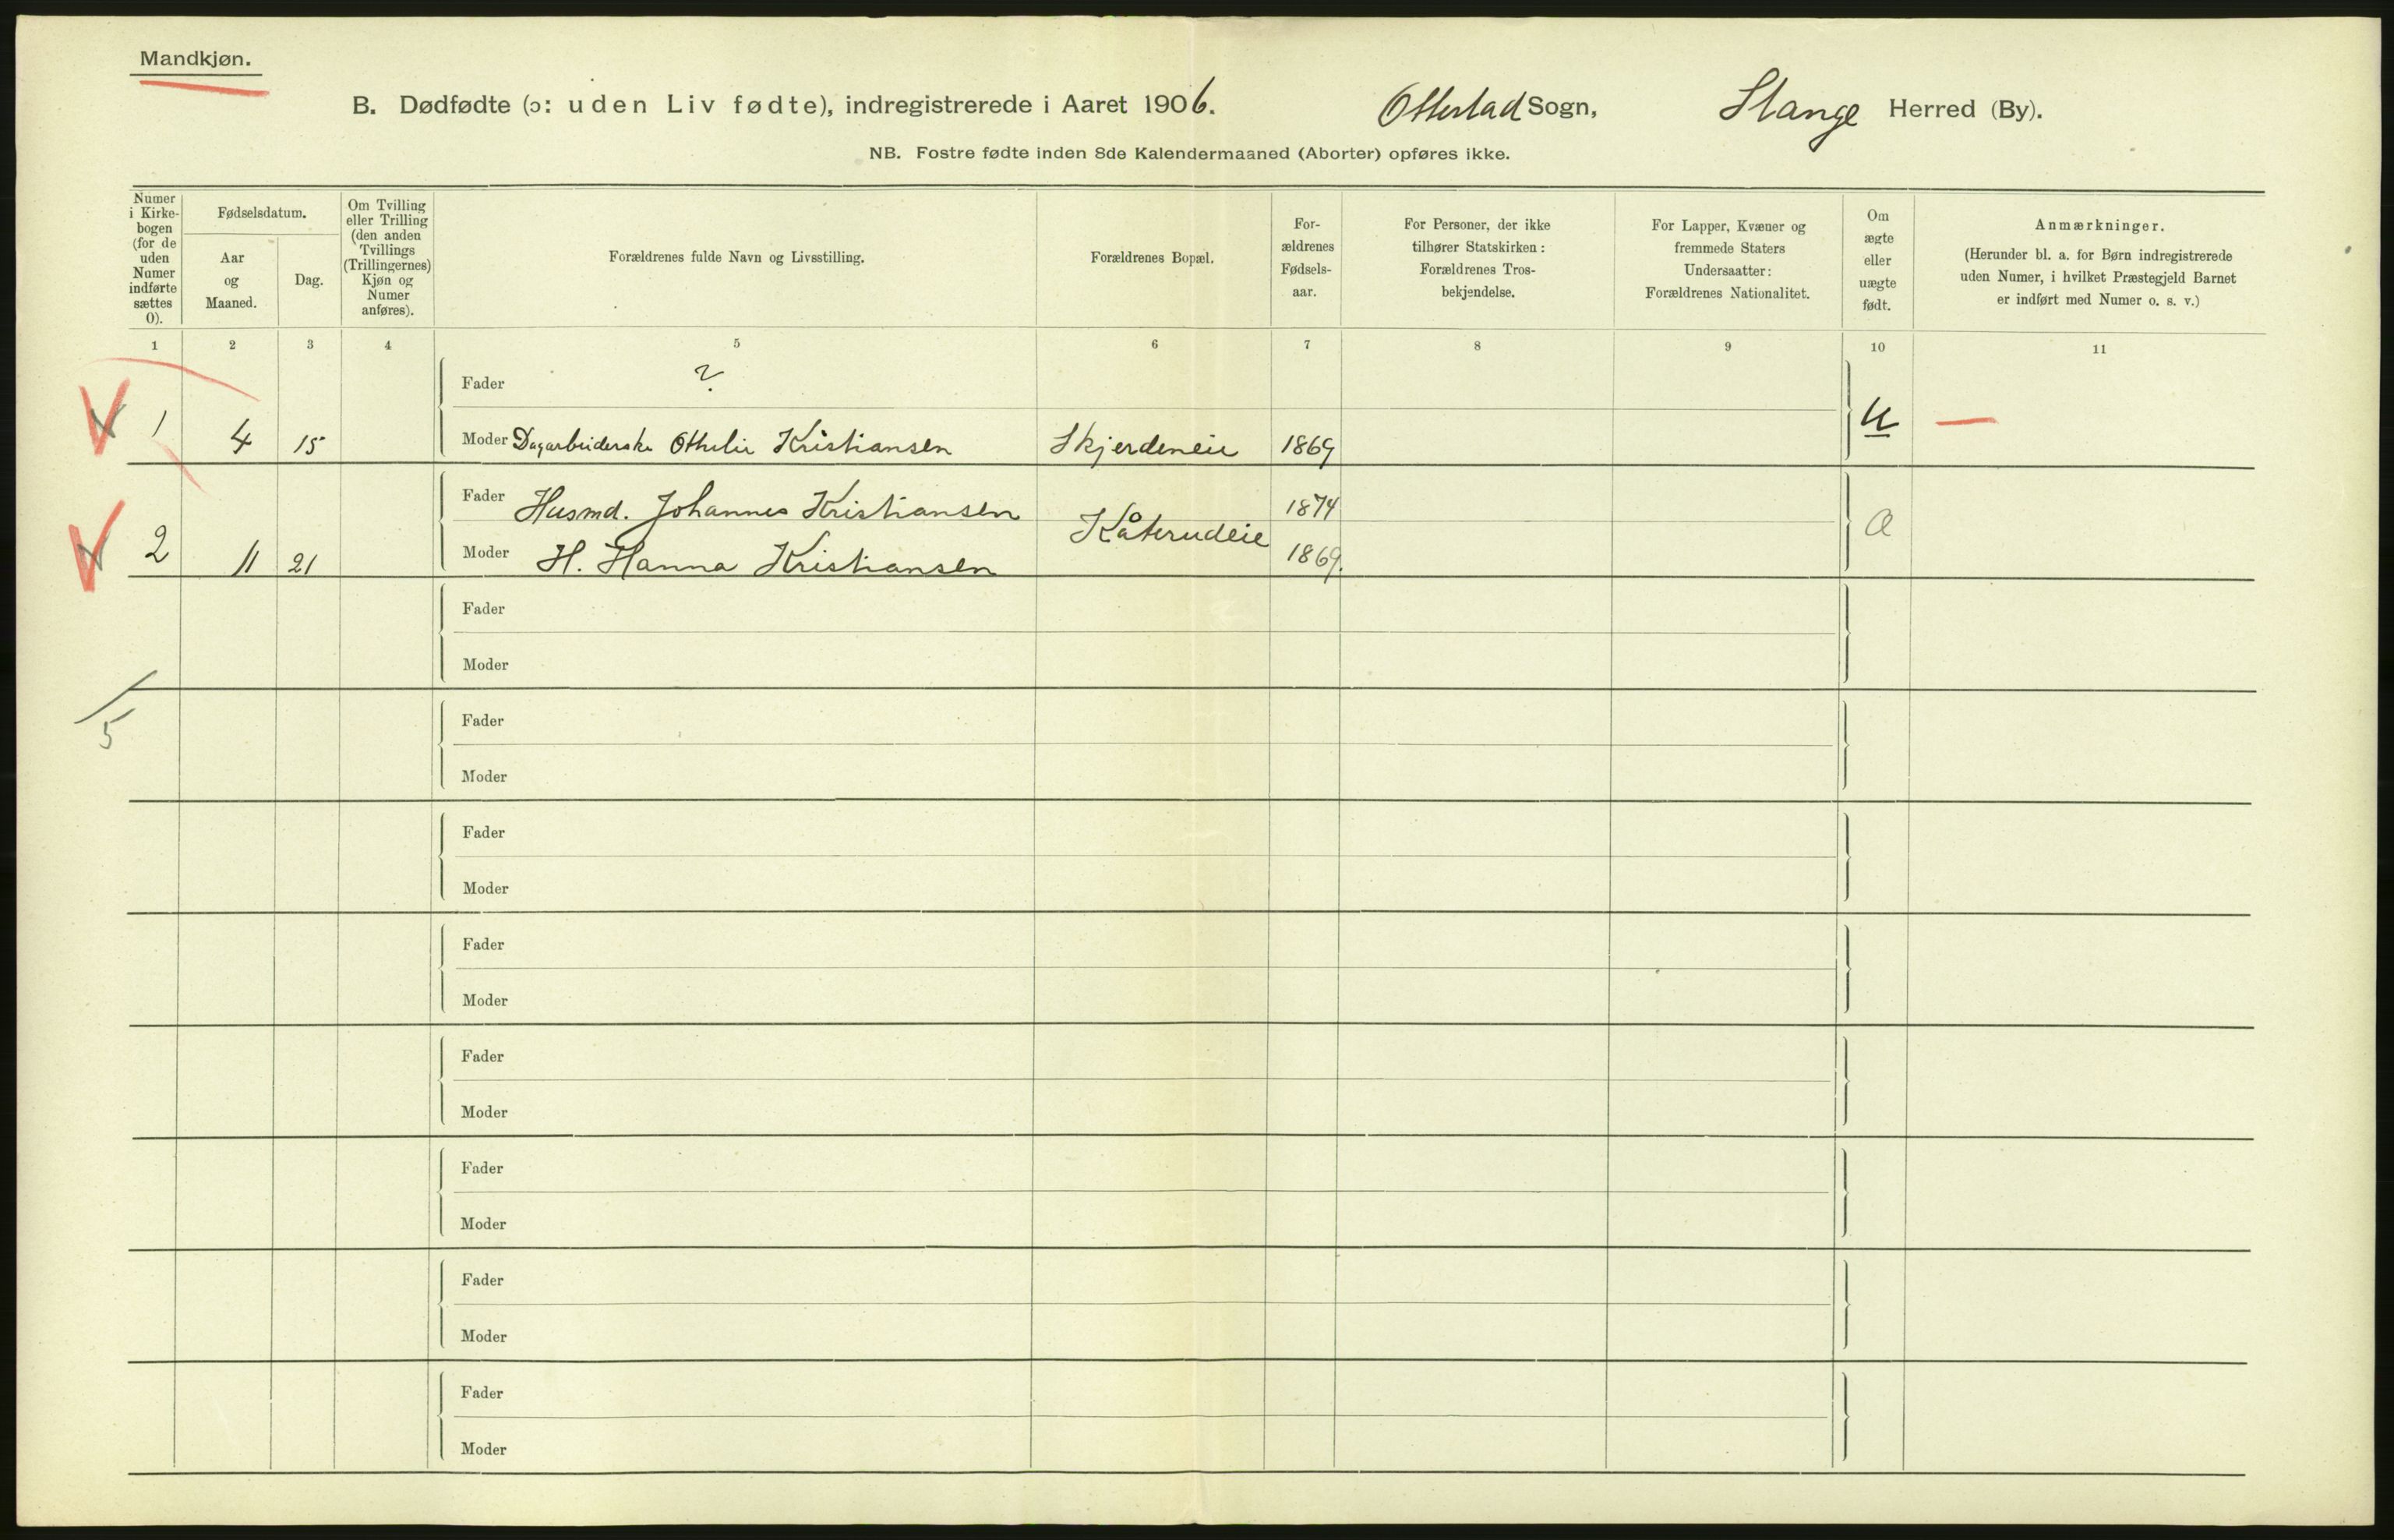 Mandkjøn.
B. Dødfødte (ɔ: uden Liv fødte), indregistrerede i Aaret 1906. Ottestad Sogn, Stange Herred (By).
NB. Fostre fødte inden 8de Kalendermaaned (Aborter) opføres ikke.
Numer
i Kirke-
bogen
(for de
uden
Numer
indførte
sættes
0).
Fødselsdatum.
Aar
og
Maaned.
Dag.
Om Tvilling
eller Trilling
(den anden
Tvillings
(Trillingernes)
Kjøn og
Numer
anføres).
Forældrenes fulde Navn og Livsstilling.
Forældrenes Bopæl.
For-
ældrenes
Fødsels-
aar.
For Personer, der ikke
tilhører Statskirken:
Forældrenes Tros-
bekjendelse.
For Lapper, Kvæner og
fremmede Staters
Undersaatter:
Forældrenes Nationalitet.
Om
ægte
eller
uægte
født.
Anmærkninger.
(Herunder bl. a. for Børn indregistrerede
uden Numer, i hvilket Præstegjeld Barnet
er indført med Numer o. s. v.)
1 2 3 4 5 6 7 8 9 10 11
Fader ?
1 4 15 Moder Dagarbeiderske Othelie Kristiansen Skjerdeneie 1869 U
Fader Husmd. Johannes Kristiansen 1874
2 11 21 Moder H. Hanna Kristiansen Kåterudeie 1869. a
Fader
Moder
5
Fader
Moder
Fader
Moder
Fader
Moder
Fader
Moder
Fader
Moder
Fader
Moder
Fader
Moder